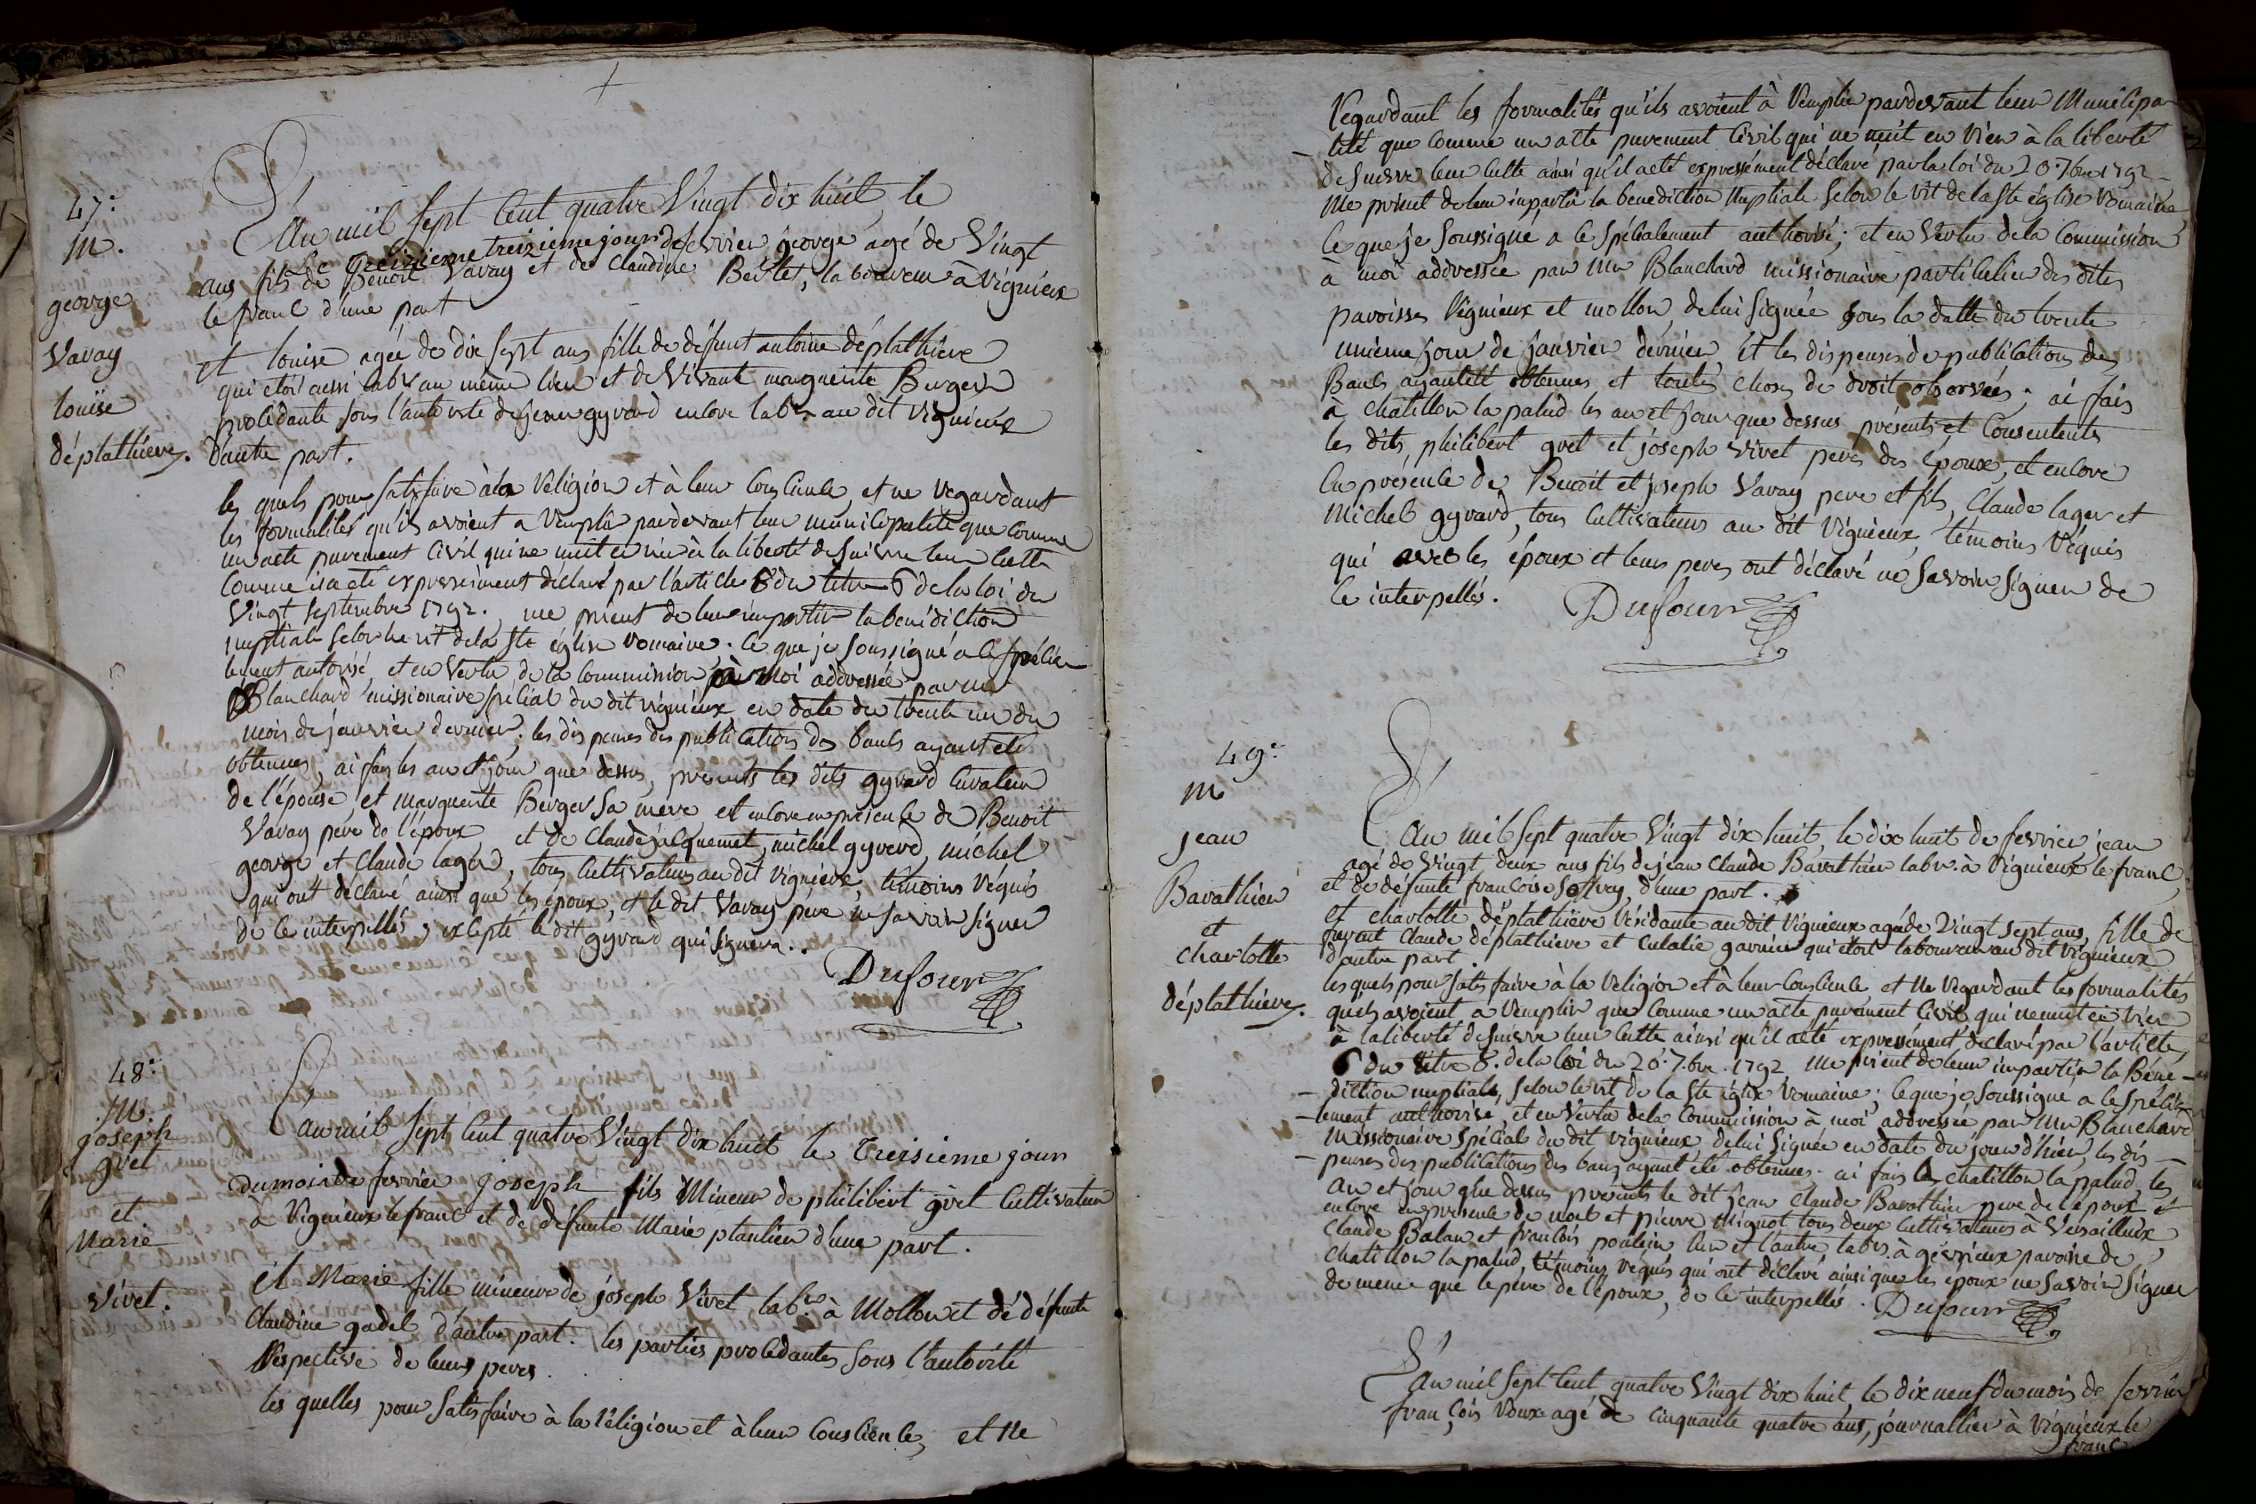 47.e
M.
george
Varay
louise
déplathiere.
L'an mil sept cent quatre vingt dix huit, le
le treizieme jour de fevrier george agé de vingt
ans fils de Benoit Varay et de Claudine Berlet, laboureur à vignieux
le franc d'une part
et louise agée de dix sept ans fille de défunt antoine déplathiere
qui etoit aussi labr au même lieu et de vivante marguerite Berger
procédante sous l'autorité de jean gyrard encore labr au dit vignieux
d'autre part.
les quels pour satisfaire à la religion et à leur conscience, et ne regardant
les formalités qu'ils avoient a remplir pardevant leur municipalité que comme
un acte purement civil qui ne nuit en rien à la liberté de suivre leur culte
comme il a eté expressément déclaré par l'article 8 du titre 6 de la loi du
vingt septembre 1792. me prient de leur impartir la benediction
nuptiale selon le rit de la Ste église romaine. ce que je soussigné a ce spécia
lement autorisé, et en vertu de la commission à moi addressée par mr
Blanchard missionaire spécial du dit vignieux en date du trente un du
mois de janvier dernier. les dispenses des publications des bancs ayant eté
obtenues, ai fais les an et jour que dessus, présents les dits gyrard curateur
de l'épouse, et marguerite Berger sa mere, et encore en présence de Benoit
Varay pere de l'époux et de Claude jacquemet, michel gyrard, michel
george et Claude lager, tous cultivateurs au dit vignieux, témoins réquis
qui ont déclaré ainsi que les époux, et le dit Varay pere ne savoir signer
de ce interpellés, excepté le dit gyrard qui signera.
Dufour
48.e
M.
joseph
gret
et
Marie
Vivet.
L'an mil sept cent quatre vingt dix huit le treisieme jour
du mois de fevrier joseph fils Mineur de philibert gret cultivateur
à vignieux le franc et de défunte Marie plantier d'une part.
et Marie fille mineure de joseph Vivet labr à Mollon et de défunte
Claudine gadel d'autre part. les parties procédantes sous l'autorité
respective de leurs peres.
les quelles pour satisfaire à la réligion et à leur conscience, et ne
regardant les formalités qu'ils avoient à remplir pardevant leur Municipa
lité que comme un acte purement civil qui ne nuit en rien à la liberté
de suivre leur culte ainsi qu'il a eté expressément déclaré par la loi du 20. 7bre 1792
me prient de leur impartir la benediction nuptiale selon le rit de la Ste église romaine
ce que je soussigné a ce spécialement authorisé; et en vertu de la commission
à moi addressée par mr Blanchard missionaire particulier des dites
paroisses Vignieux et mollon, de lui signée sous la datte du trente
unieme jour de janvier dernier et les dispenses de publications des
Bancs ayant eté obtenues, et toutes choses de droit observées; ai fais
à chatillon la palud les an et jour que dessus présents et consentents
les dits philibert gret et joseph vivet peres des époux, et encore
en présence de Benoit et joseph Varay pere et fils, Claude lager et
Michel gyrard, tous cultivateurs au dit vignieux, témoins réquis
qui avec les époux et leurs peres ont déclaré ne savoir signer de
ce interpellés.
Dufour
49.e
m
jean
Barathier
et
charlotte
déplathiere.
L'an mil sept quatre vingt dix huit, le dix huit de fevrier jean
agé de vingt deux ans fils de jean Claude Barathier labr. à vignieux le franc
et de défunte françoise d'une part.
et charlotte déplathiere résidante au dit vignieux agée de vingt sept ans, fille de
Claude déplathiere et Eulalie garnier qui étoit laboureur au dit vignieux
d'autre part.
les quels pour satisfaire à la religion et à leur conscience et ne regardant les formalités
qu'ils avoient a remplir que comme un acte purement civil qui ne nuit en rien
à la liberté de suivre leur culte ainsi qu'il a eté expressément déclaré par l'article
6 du titre 8. de la loi du 20. 7.bre. 1792 me prient de leur impartir la Béné
diction nuptiale, selon le rit de la Ste église romaine. ce que je soussigné a ce spécia
lement authorisé, et en vertu de la commission à moi addressée par Mr Blanchard
missionaire spécial du dit vignieux, de lui signée en date du jour d'hier, les dis
penses des publications des bancs ayant été obtenues. ai fais à chatillon la palud les
an et jour que dessus présents le dit jean Claude Barathier pere de l'époux et
encore en présence de noel et pierre mignot tous deux cultivateurs à Versailleux
Claude Balan et françois poulein l'un et l'autre labrs à gévrieux paroisse de
chatillon la palud, témoins requis qui ont déclaré ainsi que les époux ne savoir signer
de meme que le pere de l'époux, de ce interpellés.
Dufour
L'an mil sept cent quatre vingt dix huit, le dix neuf du mois de fevrier
françois Roux agé de cinquante quatre ans, journallier à vignieux le
franc